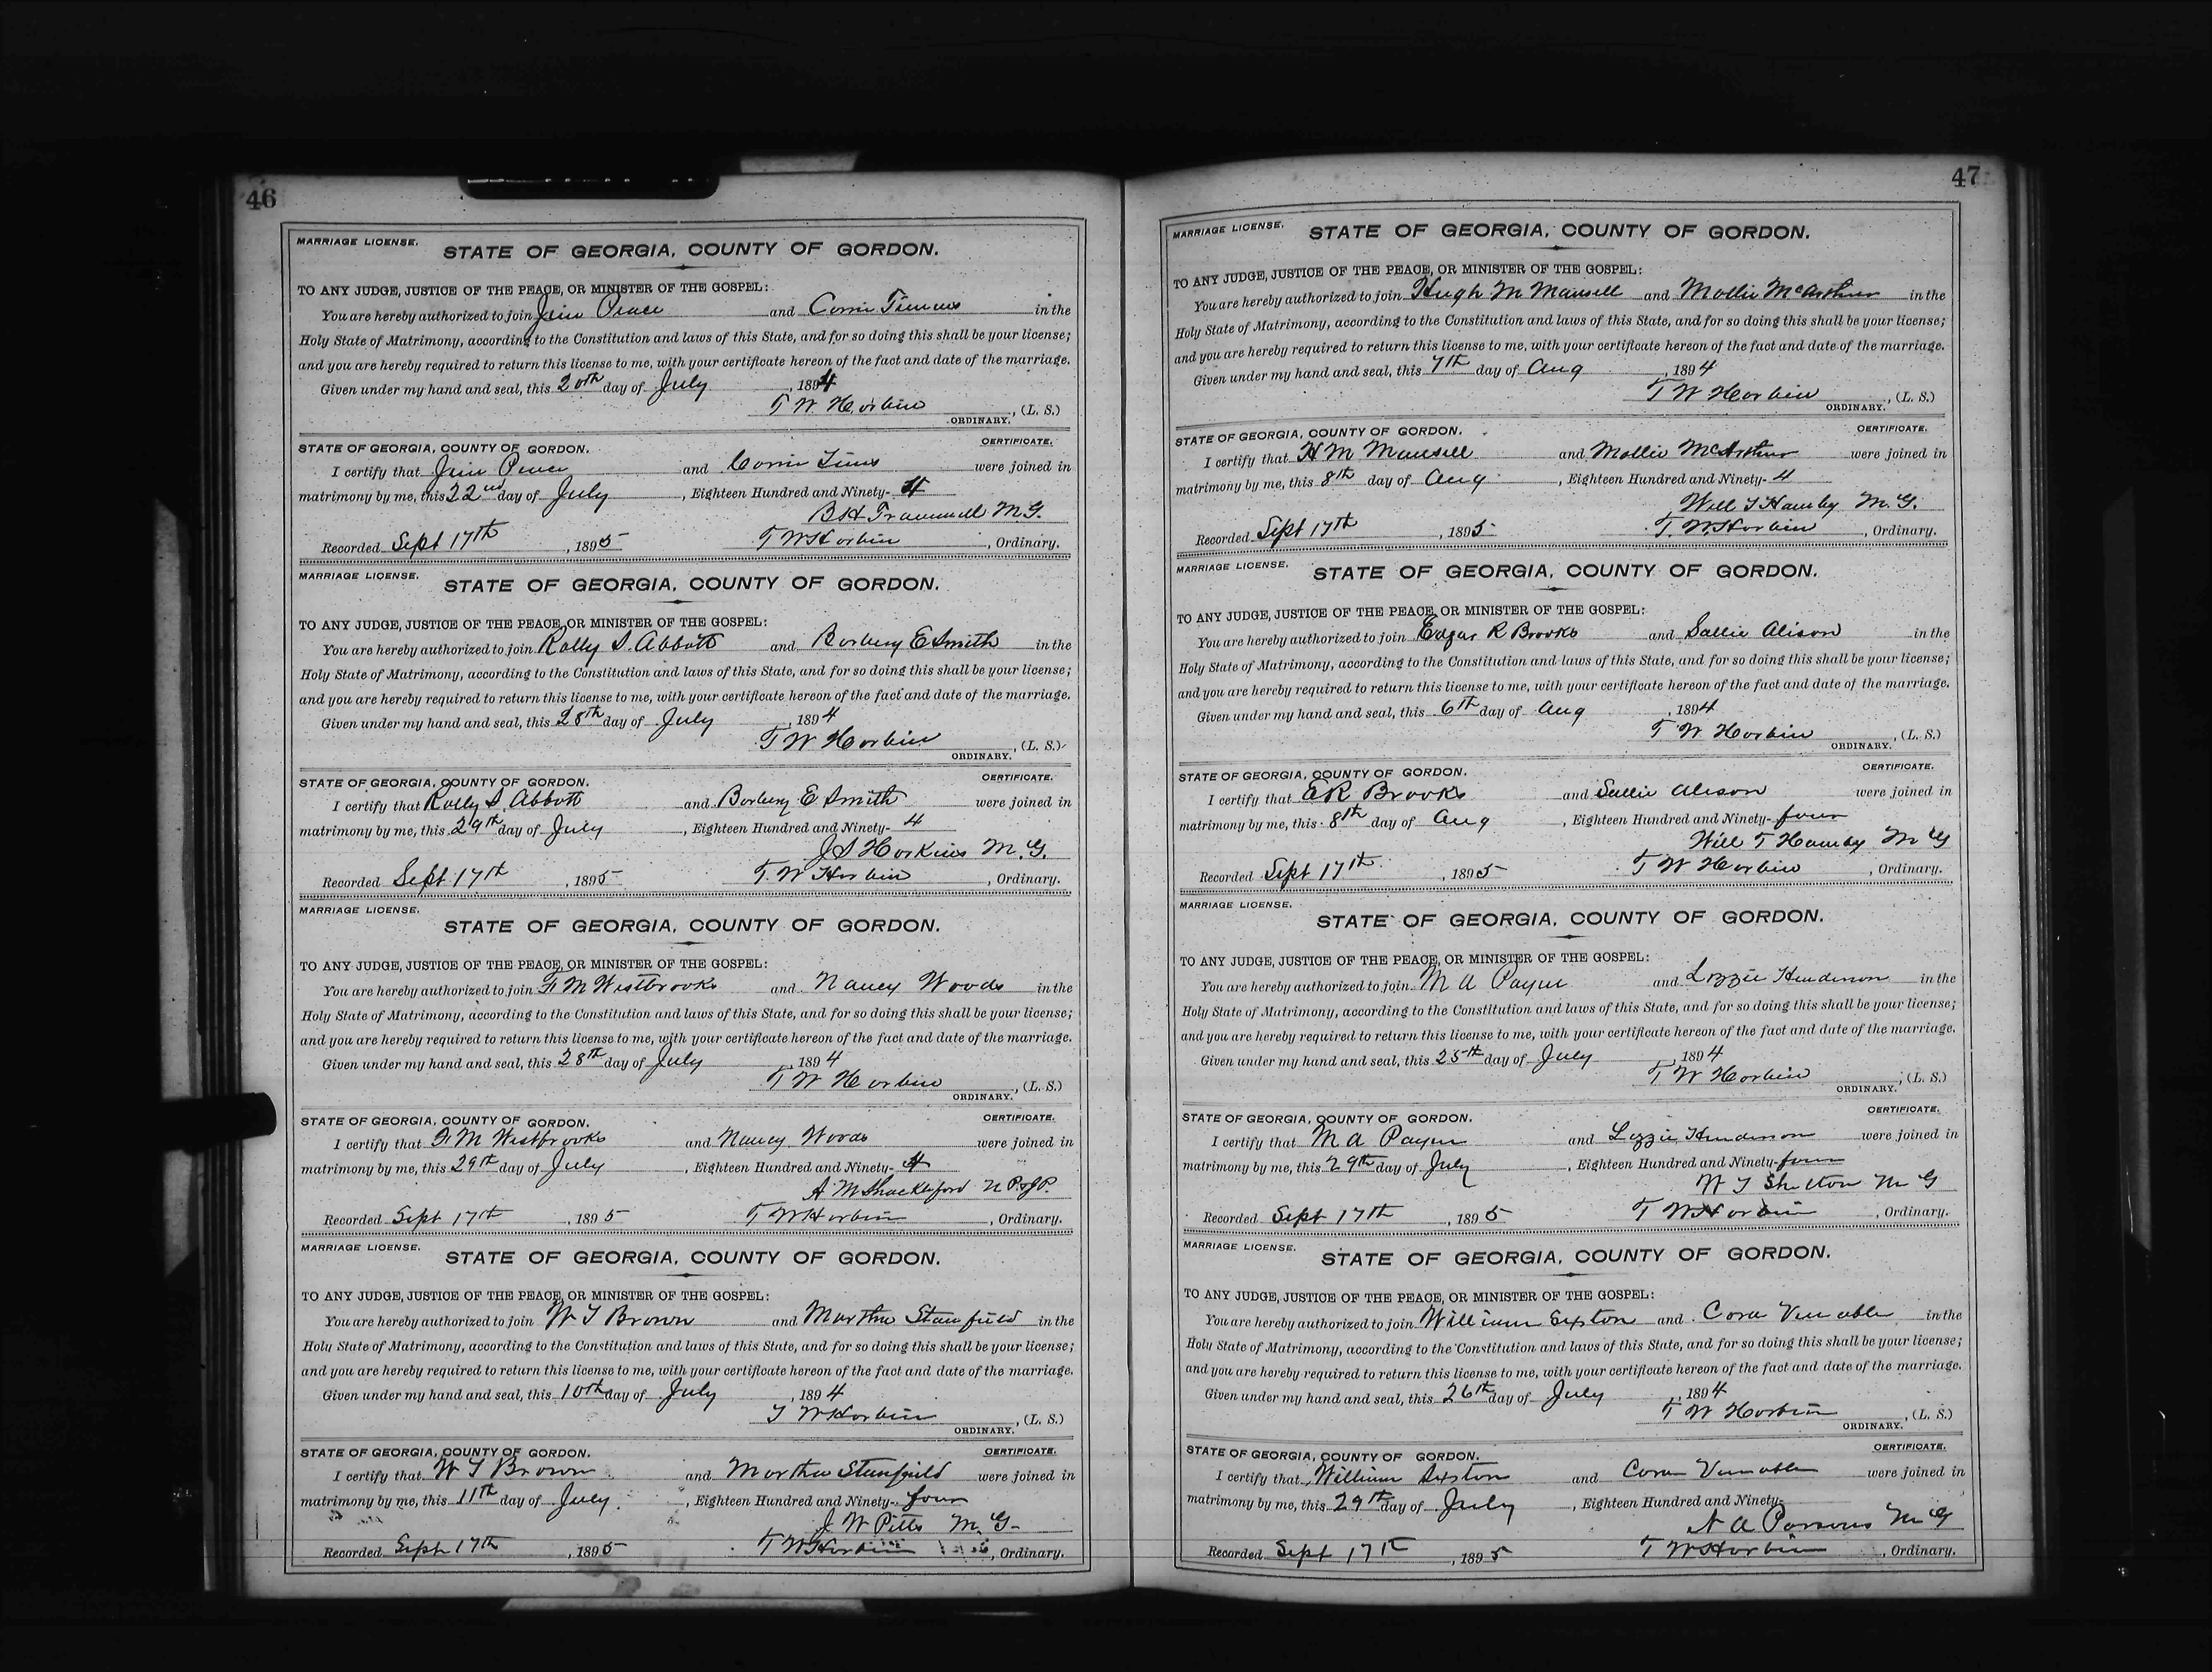 46
MARRIAGE LICENSE.
STATE OF GEORGIA, COUNTY OF GORDON.
TO ANY JUDGE, JUSTICE OF THE PEACE, OR MINISTER OF THE GOSPEL:
You are hereby authorized to join and in the
Holy State of Matrimony, according to the Constitution and laws of this State, and for so doing this shall be your license;
and you are hereby required to return this license to me, with your certificate hereon of the fact and date of the marriage.
Given under my hand and seal, this 20th day of July, 1894
T W Harbin, (L. S.)
ORDINARY.
STATE OF GEORGIA, COUNTY OF GORDON. CERTIFICATE.
I certify that and were joined in
matrimony by me, this 22nd day of July, Eighteen Hundred and Ninety-4
B H Trammell M.G.
Recorded Sept 17th, 1895 T W Harbin, Ordinary.
MARRIAGE LICENSE.
STATE OF GEORGIA, COUNTY OF GORDON.
TO ANY JUDGE, JUSTICE OF THE PEACE, OR MINISTER OF THE GOSPEL:
You are hereby authorized to join Rolly S. Abbott and E Smith in the
Holy State of Matrimony, according to the Constitution and laws of this State, and for so doing this shall be your license;
and you are hereby required to return this license to me, with your certificate hereon of the fact and date of the marriage.
Given under my hand and seal, this 28th day of July, 1894
T W Harbin, (L. S.)
ORDINARY.
STATE OF GEORGIA, COUNTY OF GORDON. CERTIFICATE.
I certify that Rolly S. Abbott and E Smith were joined in
matrimony by me, this 29th day of July, Eighteen Hundred and Ninety-4
J S Hoskins M.G.
Recorded Sept 17th, 1895 T. W Harbin, Ordinary.
MARRIAGE LICENSE.
STATE OF GEORGIA, COUNTY OF GORDON.
TO ANY JUDGE, JUSTICE OF THE PEACE, OR MINISTER OF THE GOSPEL:
You are hereby authorized to join F M Westbrooks and Nancy Woods in the
Holy State of Matrimony, according to the Constitution and laws of this State, and for so doing this shall be your license;
and you are hereby required to return this license to me, with your certificate hereon of the fact and date of the marriage.
Given under my hand and seal, this 28th day of July, 1894
T W Harbin, (L. S.)
ORDINARY.
STATE OF GEORGIA, COUNTY OF GORDON. CERTIFICATE.
I certify that F M Westbrooks and Nancy Woods were joined in
matrimony by me, this 29th day of July, Eighteen Hundred and Ninety-4
A M Shackleford N P & J P.
Recorded Sept 17th, 1895 T W Harbin, Ordinary.
MARRIAGE LICENSE.
STATE OF GEORGIA, COUNTY OF GORDON.
TO ANY JUDGE, JUSTICE OF THE PEACE, OR MINISTER OF THE GOSPEL:
You are hereby authorized to join W T Brown and Martha Stanfield in the
Holy State of Matrimony, according to the Constitution and laws of this State, and for so doing this shall be your license;
and you are hereby required to return this license to me, with your certificate hereon of the fact and date of the marriage.
Given under my hand and seal, this 10th day of July, 1894
T W Harbin, (L. S.)
ORDINARY.
STATE OF GEORGIA, COUNTY OF GORDON. CERTIFICATE.
I certify that W T Brown and Martha Stanfield were joined in
matrimony by me, this 11th day of July, Eighteen Hundred and Ninety-four
J W Pitts M.G.
Recorded Sept 17th, 1895 T W Harbin, Ordinary.
47
MARRIAGE LICENSE.
STATE OF GEORGIA, COUNTY OF GORDON.
TO ANY JUDGE, JUSTICE OF THE PEACE, OR MINISTER OF THE GOSPEL:
You are hereby authorized to join Hugh M Mansell and Mollie McArthur in the
Holy State of Matrimony, according to the Constitution and laws of this State, and for so doing this shall be your license;
and you are hereby required to return this license to me, with your certificate hereon of the fact and date of the marriage.
Given under my hand and seal, this 7th day of Aug, 1894
T W Harbin, (L. S.)
ORDINARY.
STATE OF GEORGIA, COUNTY OF GORDON. CERTIFICATE.
I certify that H M Mansell and Mollie McArthur were joined in
matrimony by me, this 8th day of Aug, Eighteen Hundred and Ninety-4
Will T Hamby M.G.
Recorded Sept 17th, 1895 T. W. Harbin, Ordinary.
MARRIAGE LICENSE.
STATE OF GEORGIA, COUNTY OF GORDON.
TO ANY JUDGE, JUSTICE OF THE PEACE, OR MINISTER OF THE GOSPEL:
You are hereby authorized to join Edgar R Brooks and Sallie Alison in the
Holy State of Matrimony, according to the Constitution and laws of this State, and for so doing this shall be your license;
and you are hereby required to return this license to me, with your certificate hereon of the fact and date of the marriage.
Given under my hand and seal, this 6th day of Aug, 1894
T W Harbin, (L. S.)
ORDINARY.
STATE OF GEORGIA, COUNTY OF GORDON. CERTIFICATE.
I certify that E R Brooks and Sallie Alison were joined in
matrimony by me, this 8th day of Aug, Eighteen Hundred and Ninety-four
Will T Hamby M G
Recorded Sept 17th, 1895 T W Harbin, Ordinary.
MARRIAGE LICENSE.
STATE OF GEORGIA, COUNTY OF GORDON.
TO ANY JUDGE, JUSTICE OF THE PEACE, OR MINISTER OF THE GOSPEL:
You are hereby authorized to join M A Payne and Lizzie Henderson in the
Holy State of Matrimony, according to the Constitution and laws of this State, and for so doing this shall be your license;
and you are hereby required to return this license to me, with your certificate hereon of the fact and date of the marriage.
Given under my hand and seal, this 25th day of July, 1894
T W Harbin, (L. S.)
ORDINARY.
STATE OF GEORGIA, COUNTY OF GORDON. CERTIFICATE.
I certify that M A Payne and Lizzie Henderson were joined in
matrimony by me, this 29th day of July, Eighteen Hundred and Ninety-four
W T Shelton M G
Recorded Sept 17th, 1895 T W Harbin, Ordinary.
MARRIAGE LICENSE.
STATE OF GEORGIA, COUNTY OF GORDON.
TO ANY JUDGE, JUSTICE OF THE PEACE, OR MINISTER OF THE GOSPEL:
You are hereby authorized to join William Sexton and Cora Venable in the
Holy State of Matrimony, according to the Constitution and laws of this State, and for so doing this shall be your license;
and you are hereby required to return this license to me, with your certificate hereon of the fact and date of the marriage.
Given under my hand and seal, this 26th day of July, 1894
T W Harbin, (L. S.)
ORDINARY.
STATE OF GEORGIA, COUNTY OF GORDON. CERTIFICATE.
I certify that William Sexton and Cora Venable were joined in
matrimony by me, this 29th day of July, Eighteen Hundred and Ninety-
N A Parsons M G
Recorded Sept 17th, 1895 T W Harbin, Ordinary.